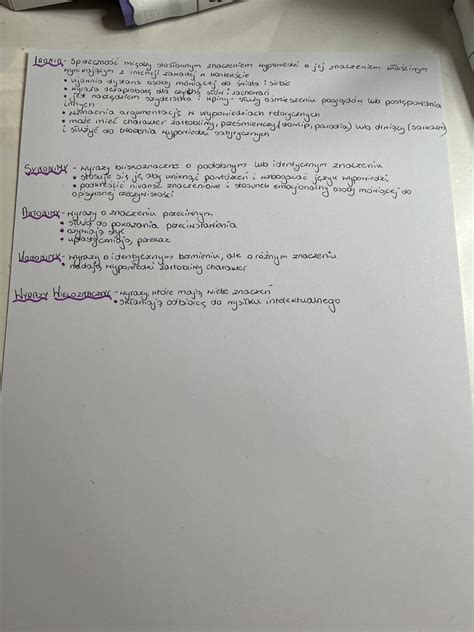 IRONIA - Sprzeczność między dosłownym znaczeniem wypowiedzi a jej znaczeniem właściwym
wynikającym z intencji zawartej w kontekście
• ujawnia dystans osoby mówiącej do świata i siebie
• wyraża dezaprobatę dla czyichś słów i zachowań
• jest narzędziem szyderstwa i kpiny - służy ośmieszeniu poglądów lub postępowania
innych
• wzmacnia argumentację w wypowiedziach retorycznych
• może mieć charakter żartobliwy, prześmiewczy (dowcip, parodia) lub drwiący (sarkazm)
i służyć do tworzenia wypowiedzi satyrycznych
SYNONIMY - wyrazy bliskoznaczne o podobnym lub identycznym znaczeniu
• stosuje się je, aby uniknąć powtórzeń i wzbogacić język wypowiedzi
• podkreślić niuanse znaczeniowe i stosunek emocjonalny osoby mówiącej do
opisywanej rzeczywistości
ANTONIMY - wyrazy o znaczeniu przeciwnym
• służą do pokazania przeciwstawienia
• ożywiają styl
• uplastyczniają przekaz
HOMONIMY - wyrazy o identycznym brzmieniu, ale o różnym znaczeniu
• nadają wypowiedzi żartobliwy charakter
WYRAZY WIELOZNACZNE - wyrazy, które mają wiele znaczeń
• skłaniają odbiorcę do wysiłku intelektualnego